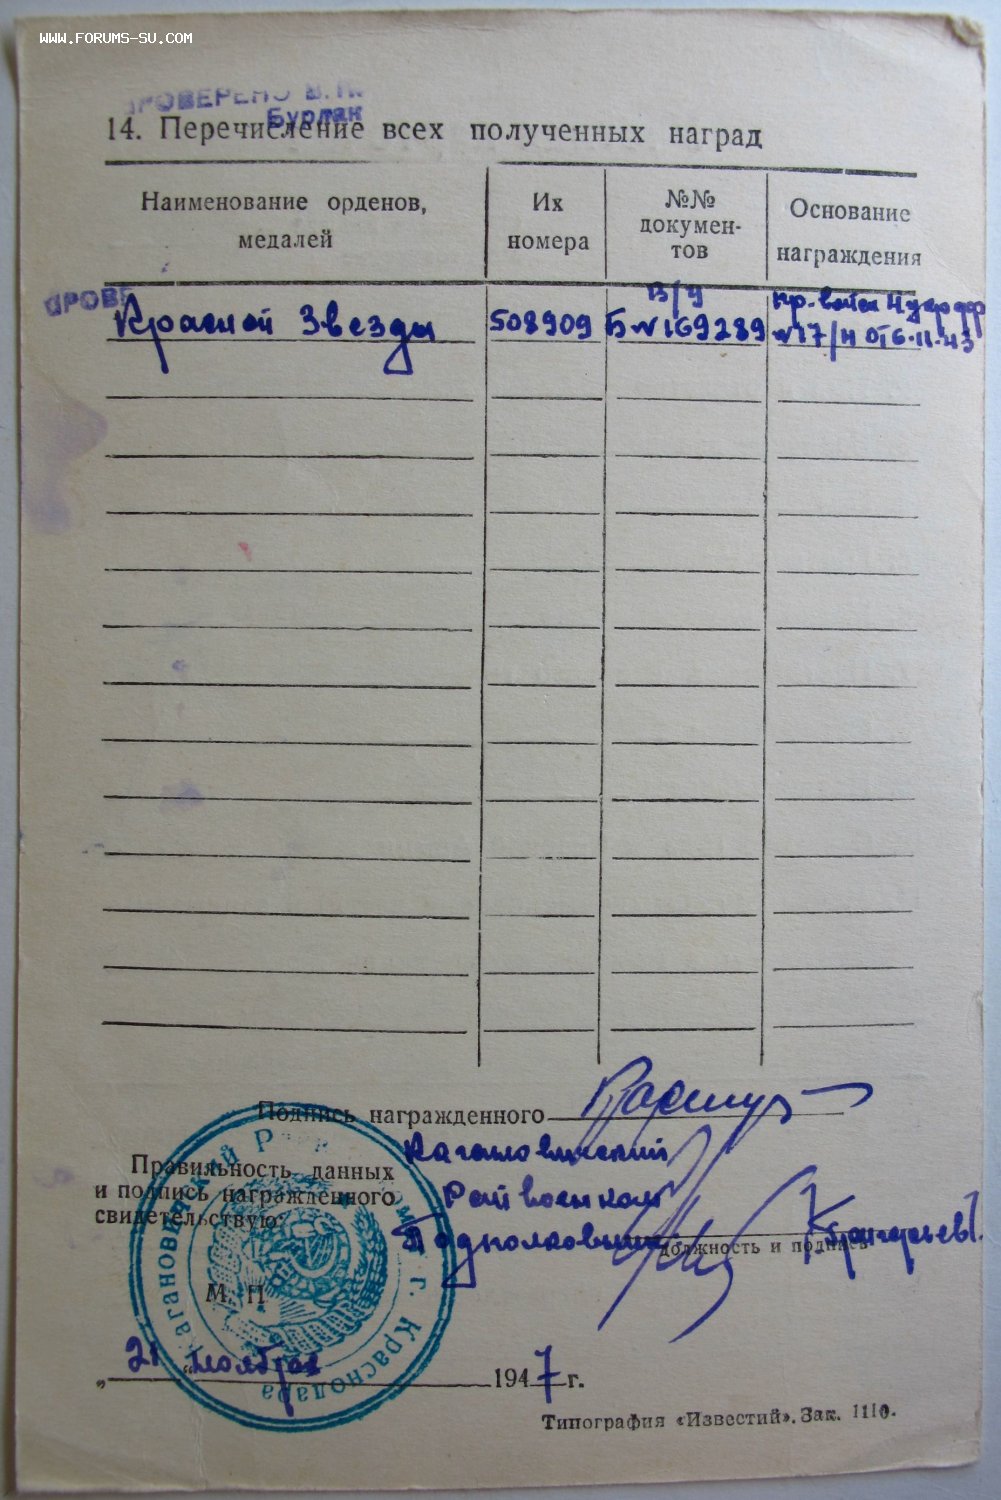 WWW.FORUMS-SU.COM
ПРОВЕРЕНО
Бурлак
14. Перечисление всех полученных наград
Наименование орденов, медалей
Их номера
№№ документов
Основание награждения
ПРОВЕ
Красной Звезды
508909
В/У
Б№169289
№17/Н от 6.11.43
Подпись награжденного
Правильность данных
и подпись награжденного
свидетельствую:
Кагановичский
Райвоенком
Подполковник
должность и подпись
М. П.
Кагановичский Р
г. Краснодара
„21 “ ноября 1947 г.
Типография «Известий». Зак. 1110.